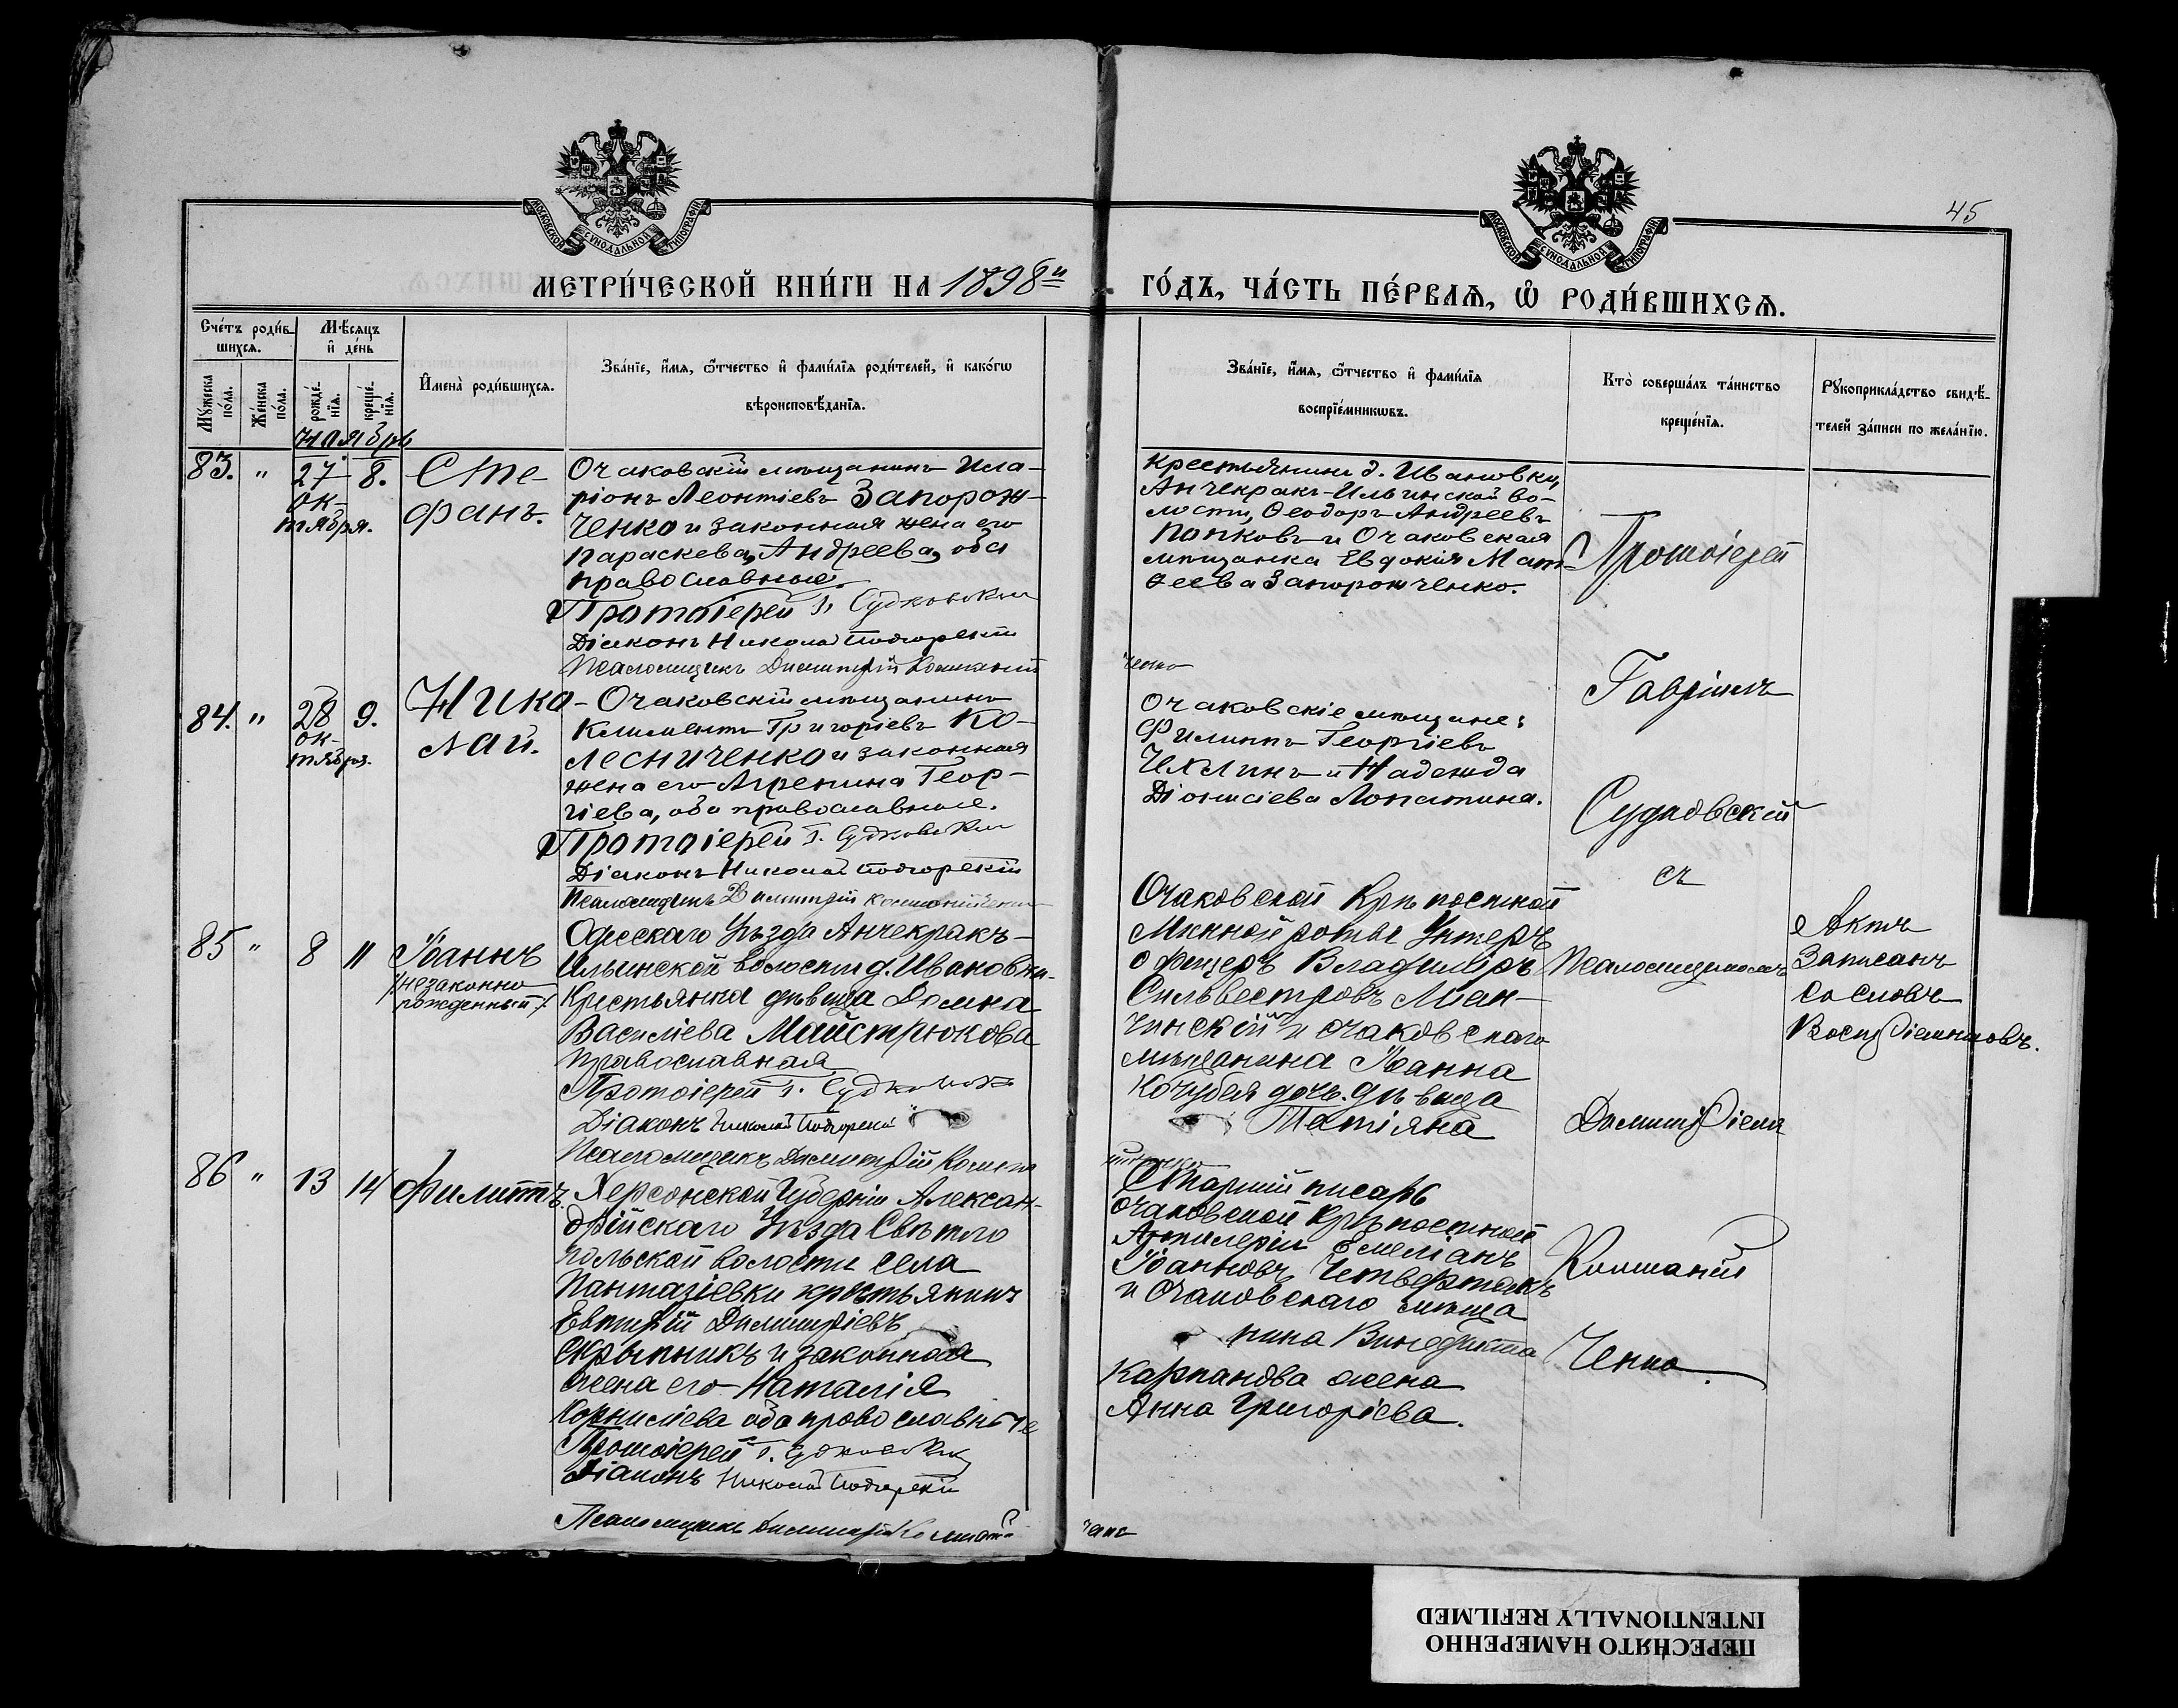 45
МОСКОВСКОЙ СѴНОДАЛЬНОЙ ТИПОГРАФІИ
МОСКОВСКОЙ СѴНОДАЛЬНОЙ ТИПОГРАФІИ
МЕТРИ́ЧЕСКОЙ КНИ́ГИ НА 1898й ГО́ДЪ, ЧА́СТЬ ПЕ́РВАѦ, Ѡ҆ РОДИ́ВШИХСѦ.
Сче́тъ роди́в-
шихсѧ.
Мꙋ́жеска по́ла.
Же́нска по́ла.
Мѣ́сѧцъ
и҆ де́нь
рожде́-
нїѧ.
креще́-
нїѧ.
И҆мена̀ роди́вшихсѧ.
Зва́нїе, и҆́мѧ, ѻ҆́тчество и҆ фами́лїѧ роди́телей, и҆ како́гѡ
вѣроисповѣ́данїѧ.
Зва́нїе, и҆́мѧ, ѻ҆́тчество и҆ фами́лїѧ
воспрїе́мникѡвъ.
Кто̀ соверша́лъ та́инство
креще́нїѧ.
Рꙋкоприкла́дство свидѣ́-
телей за́писи по жела́нїю.
Ноябрь
83. " 27 ок-
тября. 8.
Сте-
фанъ.
Очаковскій мѣщанинъ Ила-
ріонъ Леонтіевъ Запорож-
ченко и законная жена его
Параскева Андреева, оба
православные.
Протоіерей Г. Судковскій
Діаконъ Николай Подгорскій
Псаломщикъ Димитрій Колтаній
ченко
Крестьянинъ д. Ивановки,
Анчекракъ-Ильинской во-
лости, Ѳеодоръ Андреевъ
Попковъ и Очаковская
мѣщанка Евдокія Мат-
ѳеева Запорожченко.
Протоіерей
84. " 28 ок-
тября. 9.
Нико-
лай.
Очаковскій мѣщанинъ
Климентъ Григоріевъ Ко-
лесниченко и законная
жена его Агрепина Геор-
гіева, оба православные.
Протоіерей Г. Судковскій
Діаконъ Николай Подгорскій
Псаломщикъ Димитрій
Очаковскіе мѣщане:
Филиппъ Георгіевъ
Чехлинъ и Надежда
Діонисіева Лопатина.
Гавріилъ
Судковскій
съ
85 " 8 11
Іоаннъ
/незаконно
рожденный/.
Одесскаго Уѣзда Анчекракъ-
Ильинской волости д. Ивановки-
Крестьянка дѣвица Домна
Василіева Майстрюкова
православная
Протоіерей Г. Судковскій
Діаконъ Николай Подгорскій
Псаломщикъ Димитрій
Очаковской Крѣпостной
Минной роты Унтеръ
офицеръ Владиміръ
Сильвестровъ Ман-
чинскій и очаковскаго
мѣщанина Іоанна
Кочубея дочь. дѣвица
Татіана
Псаломщикомъ
Актъ
Записанъ
со словъ
Воспріемниковъ.
Димитріемъ
86 " 13 14 Филиппъ.
Херсонской Губерніи Алексан-
дрійскаго Уѣзда Свѣтло
польской волости села
Пантазіевки крестьянинъ
Евтихій Димитріевъ
Скрыпникъ и законная
жена его Наталія
Корниліева оба православные
Протоіерей Г. Судковскій
Діаконъ Николай Подгорскій
Псаломщикъ Димитрій
Старшій писарь
очаковской крѣпостной
Артилеріи Емеліанъ
Іоанновъ Четвертакъ
и Очаковскаго мѣща
нина Винедикта
Карпанова жена
Анна Григоріева.
Колтаній
Ченко.
ПЕРЕСНЯТО НАМЕРЕННО
INTENTIONALLY REFILMED